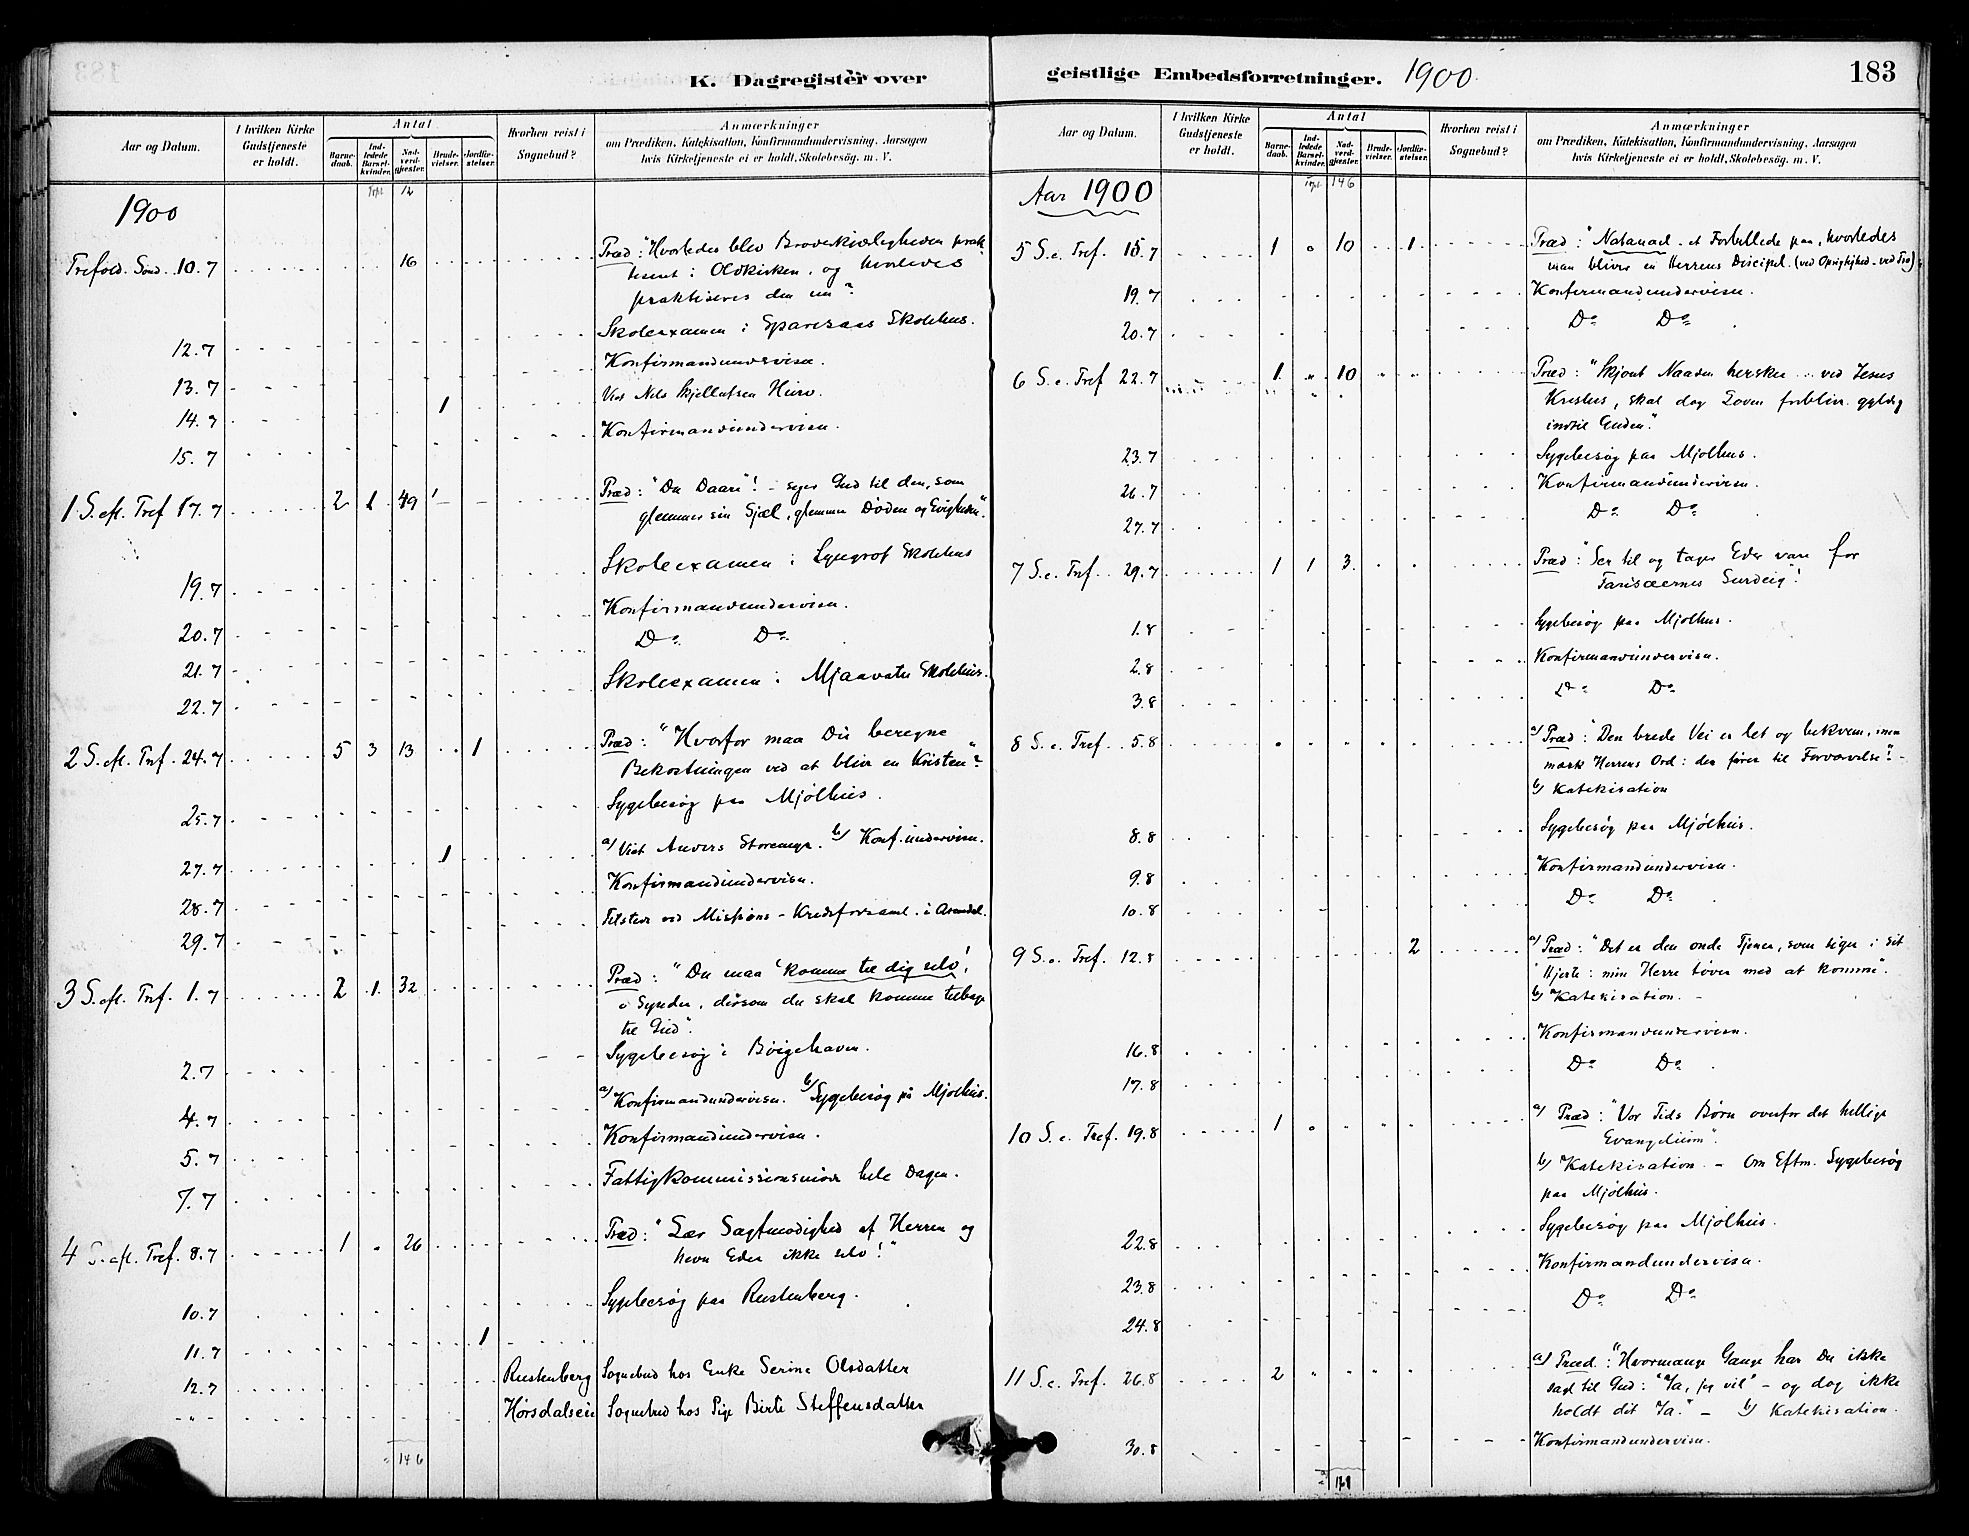 K. Dagregister over
Aar og Datum.
I hvilken Kirke Gudstjeneste er holdt.
Antal
Barnedaab.
Indledede Barselkvinder.
Nadverdgjester.
Brudevielser.
Jordfæstelser.
Hvorhen reist i Sognebud?
Anmærkninger
om Prædiken, Katekisation, Konfirmandundervisning, Aarsagen
hvis Kirketjeneste ei er holdt, Skolebesøg. m. V.
Tspt. 12
1900
Trefold. Sønd. 10.7 16 Præd: "Hvorledes blev Broderkjærligheden prak-
tiseret i Oldkirken, og hvorledes
praktiseres den nu?"
12.7 Skoleexamen i Skolehus.
13.7 Konfirmandundervisn.
14.7 1 Viet Nils
15.7 Konfirmandundervisn.
1 S. eft. Tref 17.7 2 1 49 Præd: "Du Daare"! - siger Gud til den, som
glemmer sin Sjæl, glemmer Døden og Evigheden".
19.7 Skoleexamen i Lyngrot Skolehus
20.7 Konfirmandundervisn.
21.7 Do Do
22.7 Skoleexamen i Mjaavatn Skolehus.
2 S. eft. Tref. 24.7 5 3 13 1 Præd: "Hvorfor maa Du beregne
Bekostningen ved at blive en Kristen"?
25.7 Sygebesøg paa Mjølhus.
27.7 1 a) Viet Anders b) Konf.undervisn.
28.7 Konfirmandundervisn.
29.7 Tilstede ved Missions-Kredsforsaml. i Arendal.
3 S. eft. Tref. 1.7 2 1 32 Præd: "Du maa 'komme til dig selv',
o Synder, dersom du skal komme tilbage
til Gud".
2.7 Sygebesøg i Bøigehaven.
4.7 a) Konfirmandundervisn. b) Sygebesøg på Mjølhus.
5.7 Konfirmandundervisn.
7.7 Fattigkommissionsmøde hele Dagen.
4 S. eft. Tref. 8.7 1 " 26 Præd: "Lær Sagtmodighed af Herren og
hevn Eder ikke selv!"
10.7 Sygebesøg paa Rustenberg.
11.7 1
12.7 Rustenberg Sognebud hos Enke Serine Olsdatter
-"- Sognebud hos Pige Birte Steffensdatter
146
geistlige Embedsforretninger. 1900
183
Aar og Datum.
I hvilken Kirke Gudstjeneste er holdt.
Antal
Barnedaab.
Indledede Barselkvinder.
Nadverdgjester.
Brudevielser.
Jordfæstelser.
Hvorhen reist i Sognebud?
Anmærkninger
om Prædiken, Katekisation, Konfirmandundervisning, Aarsagen
hvis Kirketjeneste ei er holdt, Skolebesøg. m. V.
Tspt. 146
Aar 1900
5 S. e. Tref. 15.7 1 " 10 1 Præd: "Natanael - et Forbillede paa, hvorledes
man bliver en Herrens Discipel. (ved Oprigtighed - ved Tro)
19.7 Konfirmandundervisn.
20.7 Do Do
6 S. e. Tref 22.7 1 " 10 " " Præd: "Skjønt Naaden hersker ved Jesus
Kristus, skal dog Loven forblive gyldig
indtil Enden".
23.7 Sygebesøg paa Mjølhus.
26.7 Konfirmandundervisn.
27.7 Do Do
7 S. e. Tref. 29.7 1 1 3 Præd: "Ser til og tager Eder vare for
Farisæernes Surdeig"!
1.8 Sygebesøg paa Mjølhus.
2.8 Konfirmandundervisn.
3.8 Do Do
8 S. e. Tref. 5.8 a) Præd: "Den brede Vei er let og bekvem, men
mærk Herrens Ord: den fører til Fordærvelse"! -
b) Katekisation
8.8 Sygebesøg paa Mjølhus.
9.8 Konfirmandundervisn.
10.8 Do Do
9 S. e. Tref. 12.8 2 a) Præd: "Det er den onde Tjener, som siger i sit
Hjerte: min Herre tøver med at komme".
b) Katekisation. -
16.8 Konfirmandundervisn.
17.8 Do Do
10 S. e. Tref. 19.8 1 a) Præd: "Vor Tids Børn overfor det hellige
Evangelium".
b) Katekisation. - Om Eftm. Sygebesøg
paa Mjølhus.
22.8 Sygebesøg paa Mjølhus.
23.8 Konfirmandundervisn.
24.8 Do Do
11 S. e. Tref. 26.8 2 a) Præd: "Hvormange Gange har Du ikke
sagt til Gud: "Ja, jeg vil" - og dog ikke
holdt dit Ja." - b) Katekisation.
30.8 Konfirmandundervisn.